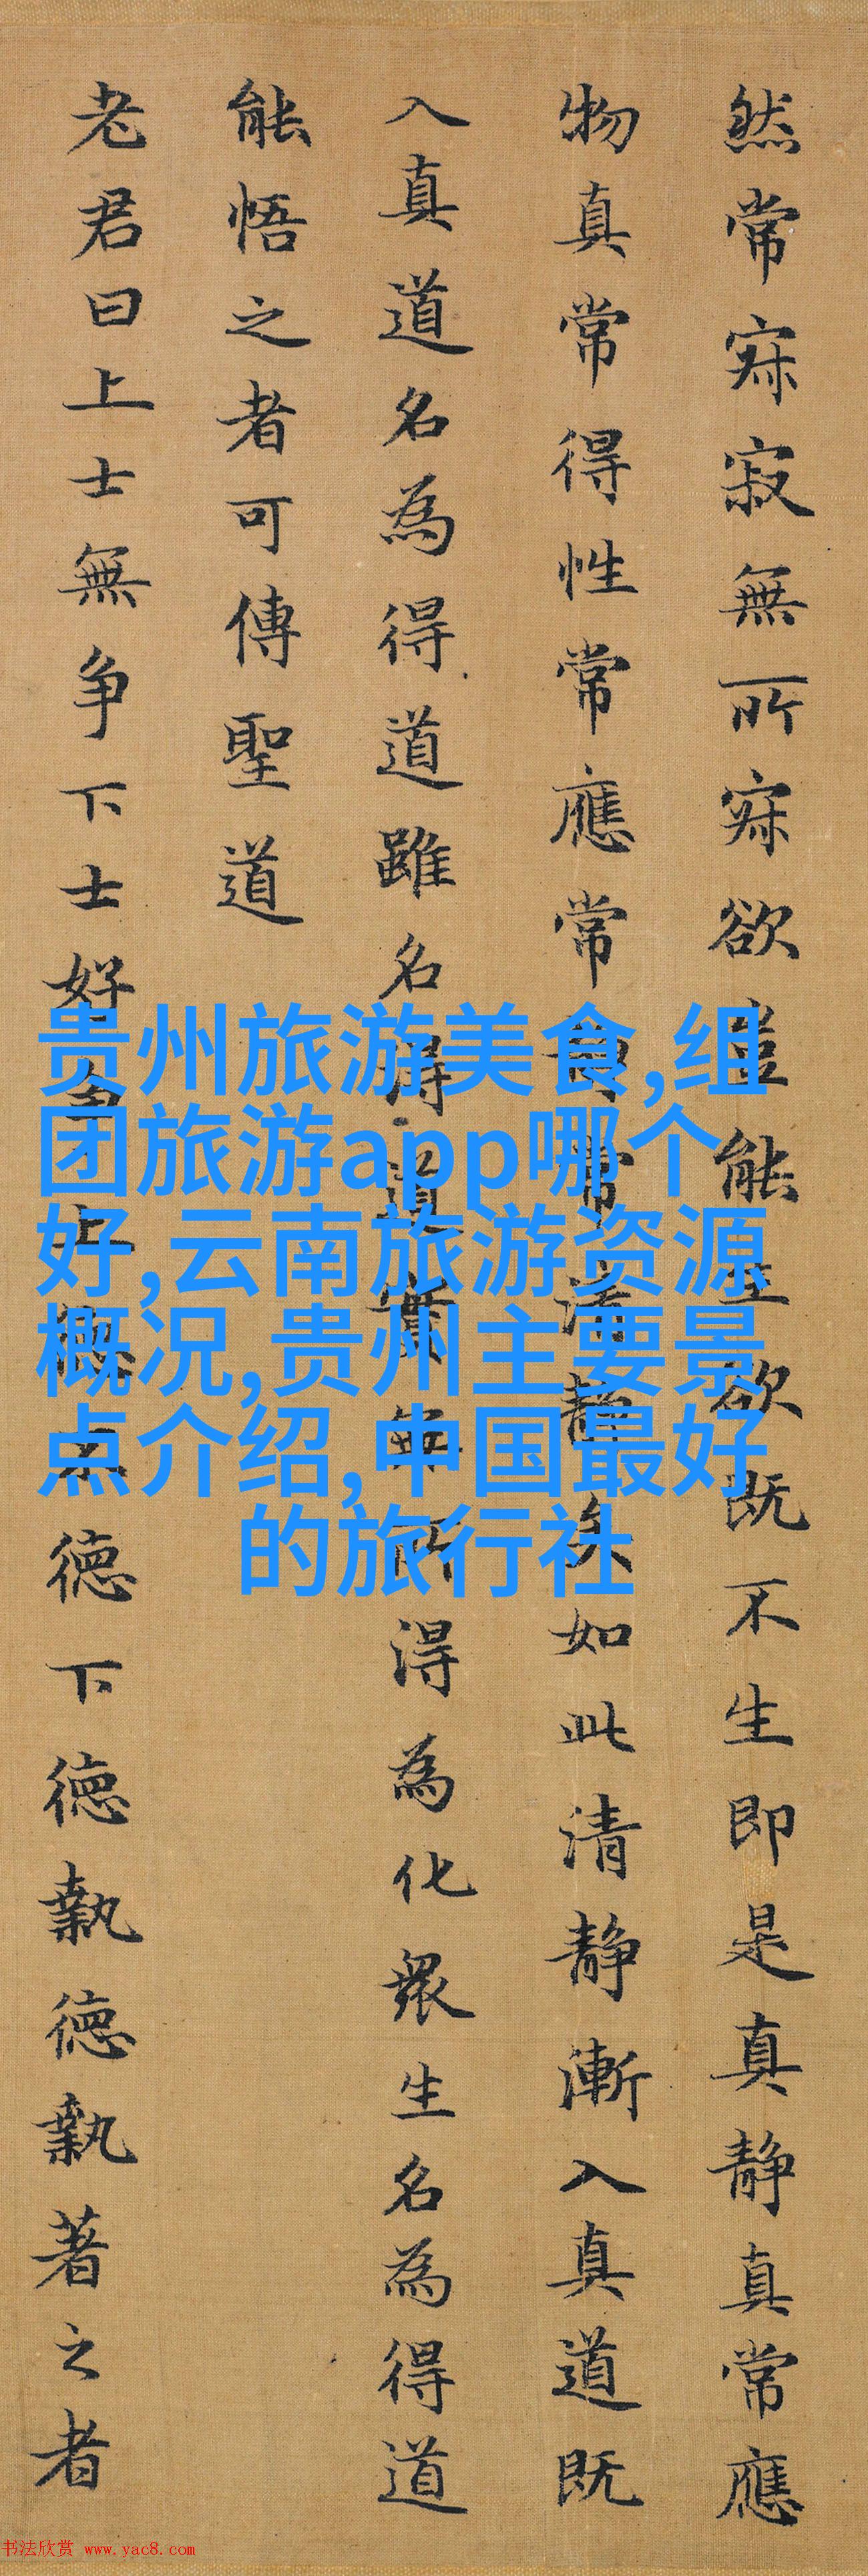 然常寂寂無所寂欲豈能生欲既不生即是真静真常應
物真常得性常應常静常清静矣如此清静漸入真道既
入真道名為得道雖名得道實無所得為化衆生名為得道
能悟之者可傳聖道
老君曰上士無争下士好争上德不德下德執德執著之者
贵州旅游美食,组
团旅游app哪个
好,云南旅游资源
概况,贵州主要景
点介绍,中国最好
的旅行社
书法欣赏 www.yac8.com